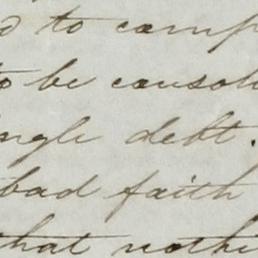 to comp
to be consol
ingle debt.
bad faith
that nothi